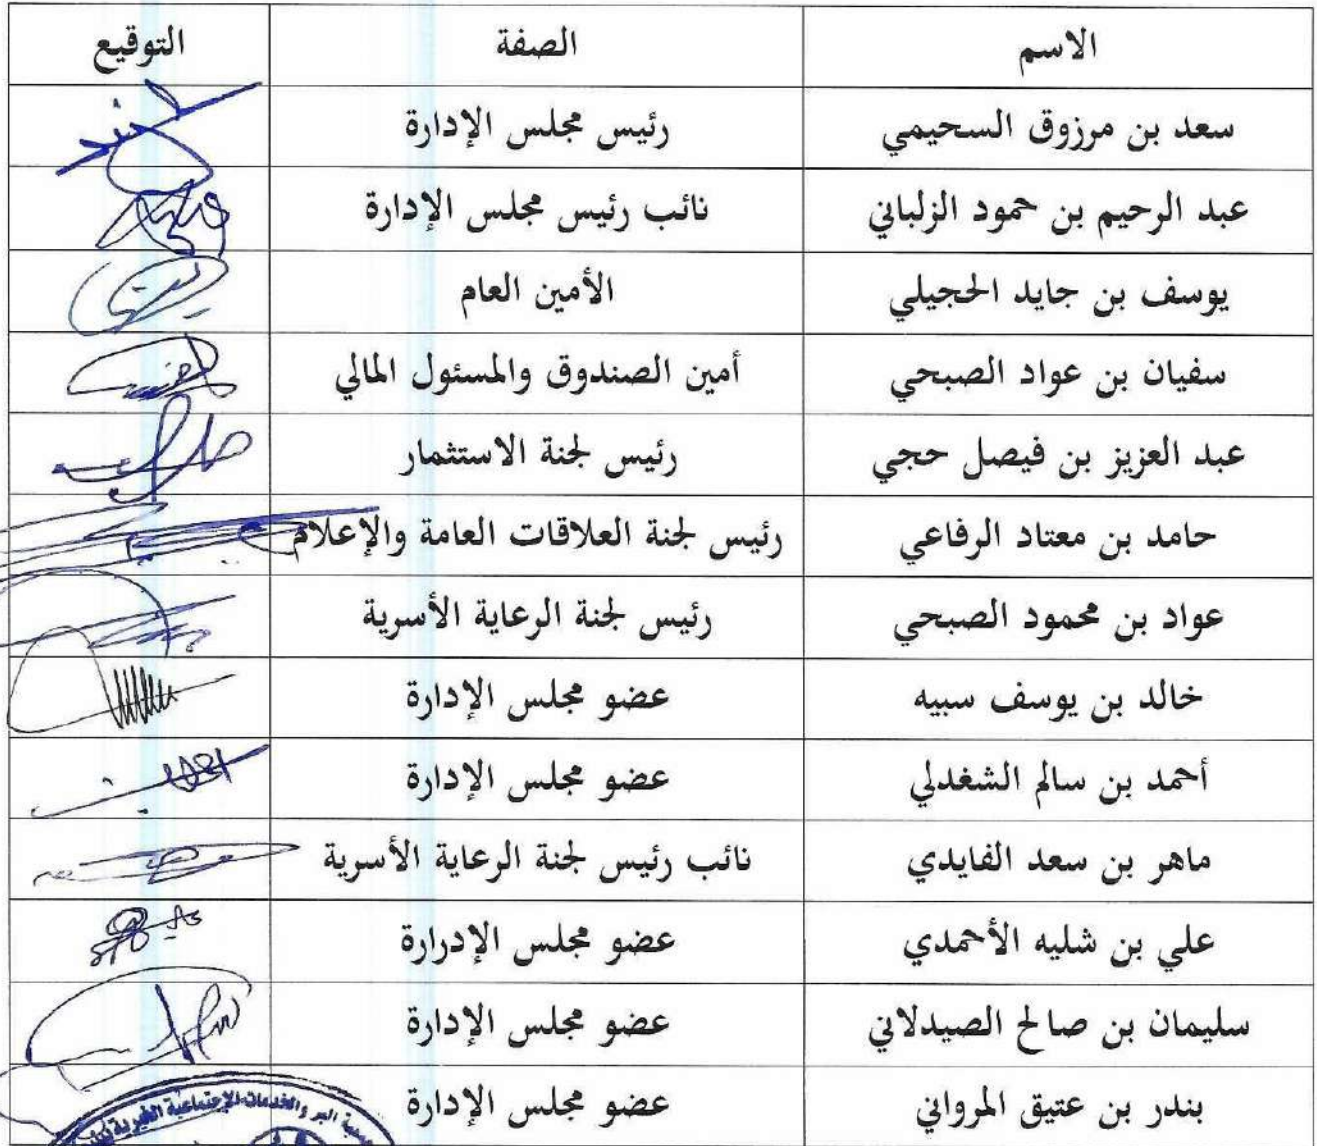 الاسم الصفة التوقيع
سعد بن مرزوق السحيمي رئيس مجلس الإدارة
عبد الرحيم بن حمود الزلباني نائب رئيس مجلس الإدارة
يوسف بن جايد الحجيلي الأمين العام
سفيان بن عواد الصبحي أمين الصندوق والمسئول المالي
عبد العزيز بن فيصل حجي رئيس لجنة الاستثمار
حامد بن معتاد الرفاعي رئيس لجنة العلاقات العامة والإعلام
عواد بن محمود الصبحي رئيس لجنة الرعاية الأسرية
خالد بن يوسف سبيه عضو مجلس الإدارة
أحمد بن سالم الشغدلي عضو مجلس الإدارة
ماهر بن سعد الفايدي نائب رئيس لجنة الرعاية الأسرية
علي بن شليه الأحمدي عضو مجلس الإدرارة
سليمان بن صالح الصيدلاني عضو مجلس الإدارة
بندر بن عتيق المرواني عضو مجلس الإدارة
البر والخدمات الإجتماعية الخيرية